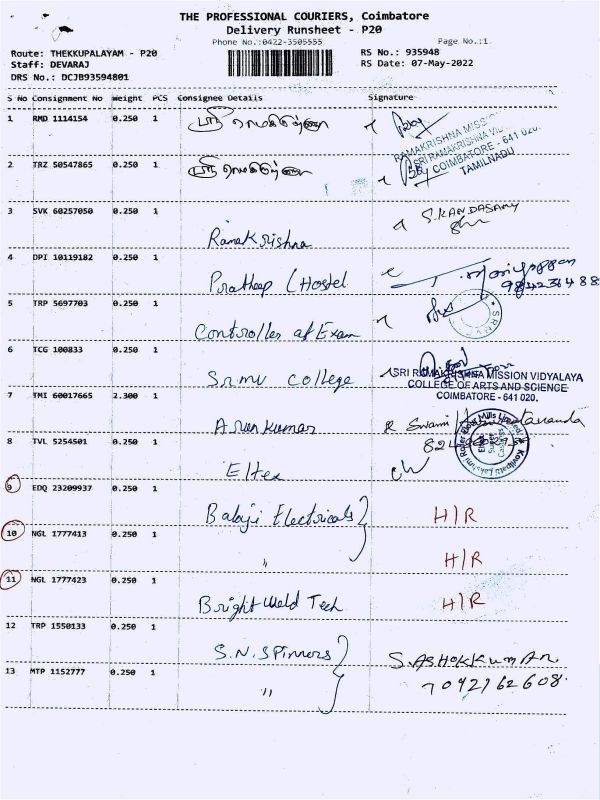 THE PROFESSIONAL COURIERS, Coimbatore
Delivery Runsheet - P20
Phone No.:0422-3505555 Page No.:1
Route: THEKKUPALAYAM - P20 RS No.: 935948
Staff: DEVARAJ RS Date: 07-May-2022
DRS No.: DCJB93594801
S No Consignment No Weight PCS Consignee Details Signature
1 RMD 1114154 0.250 1
RAMAKRISHNA MISSION
SRI RAMAKRISHNA
COIMBATORE - 641 020.
TAMILNADU
2 TRZ 50547865 0.250 1
3 SVK 60257050 0.250 1 Ramakrishna S.KANDASAMY
4 DPI 10119182 0.250 1 Pratheep (Hostel
5 TRP 5697703 0.250 1 Controller of Exam
SRMV
6 TCG 100833 0.250 1 Srmv College
SRI RAMAKRISHNA MISSION VIDYALAYA
COLLEGE OF ARTS AND SCIENCE
COIMBATORE - 641 020.
7 TMI 60017665 2.300 1 Arun kumar Swami
8 TVL 5254501 0.250 1 Eltex
9 EDQ 23209937 0.250 1 Balaji Electricals H/R
10 NGL 1777413 0.250 1 " H/R
11 NGL 1777423 0.250 1 Bright Weld Tech H/R
12 TRP 1550133 0.250 1 S.N. Spinners S. ASHOKKUMAR
13 MTP 1152777 0.250 1 " 7092162608